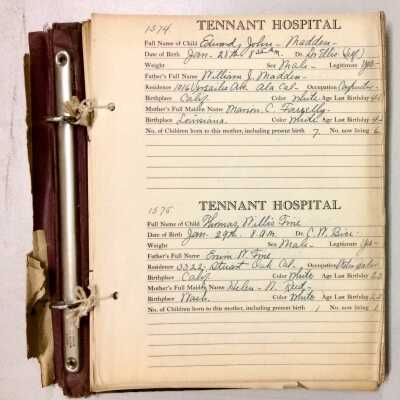 1574
TENNANT HOSPITAL
Full Name of Child Edward John - Madden -
Date of Birth Jan - 28th 8 A.M. Dr. Ellis
Weight Sex Male - Legitimate Yes -
Father's Full Name William J. Madden -
Residence 1016 Versailes Ave Ala Cal - Occupation
Birthplace Calif Color White Age Last Birthday
Mother's Full Maiden Name Marion C.
Birthplace Louisiana. Color White Age Last Birthday
No. of Children born to this mother, including present birth 7 No. now living 6
1575
TENNANT HOSPITAL
Full Name of Child Thomas Willis Fine
Date of Birth Jan - 29th - 8 A.M. Dr. C. W.
Weight Sex Male - Legitimate Yes -
Father's Full Name W. Fine
Residence 3322 Stuart Oak Cal. Occupation
Birthplace Calif Color White Age Last Birthday 23
Mother's Full Maiden Name Helen - N. Reid -
Birthplace Wash. Color White Age Last Birthday 22
No. of Children born to this mother, including present birth 1 No. now living 1